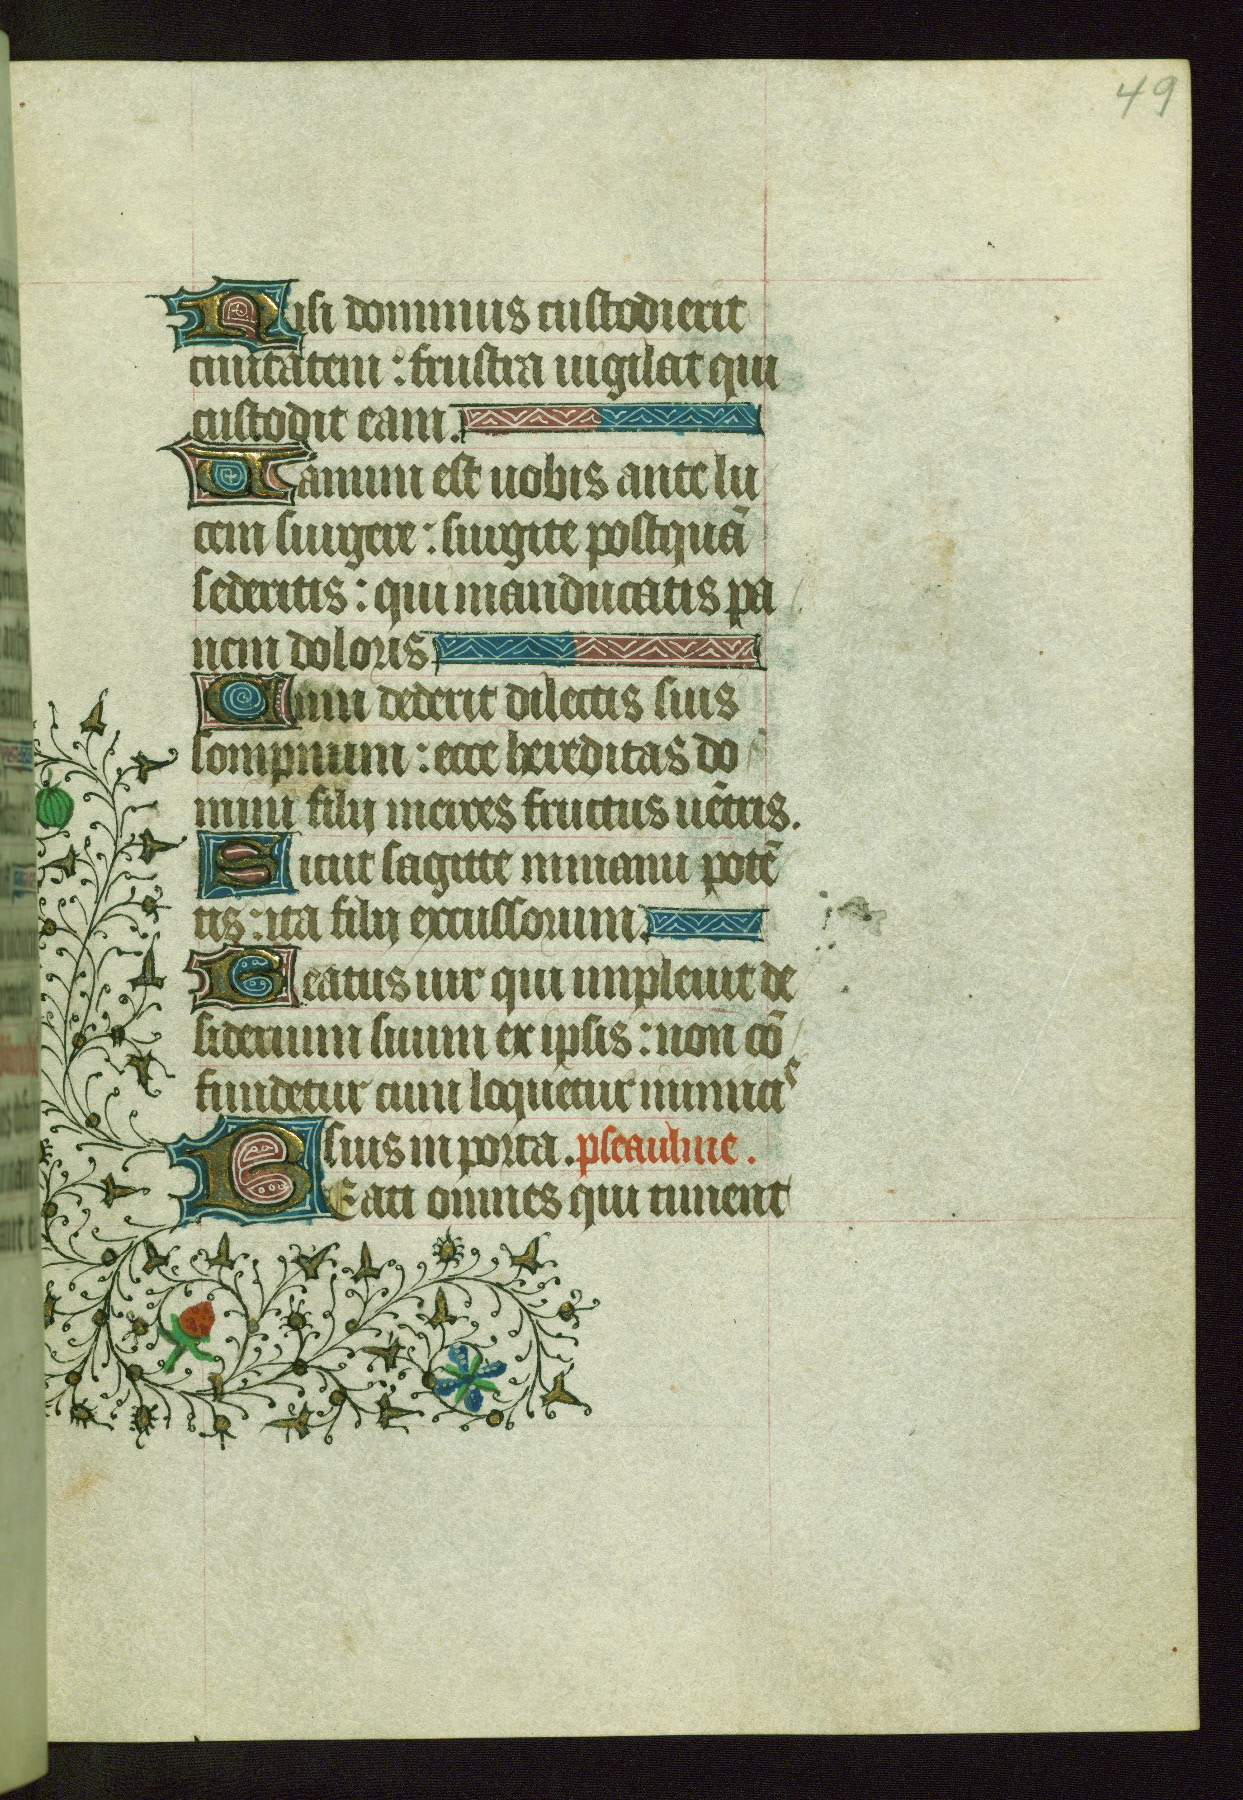 49
Nisi dominus custodierit
ciuitatem : frustra uigilat qui
custodit eam.
Uanum est uobis ante lu
cem surgere : surgite postquã
sederitis : qui manducatis pa
nem doloris
Cum dederit dilectis suis
sompnum : ecce hereditas do
mini filij merces fructus uẽtris.
Sicut sagitte in manu potẽ
tis : ita filij excussorum.
Beatus uir qui impleuit de
siderium suum ex ipsis : non cõ
fundetur cum loquetur inimicis
suis in porta . pseaulme .
BEati omnes qui timent